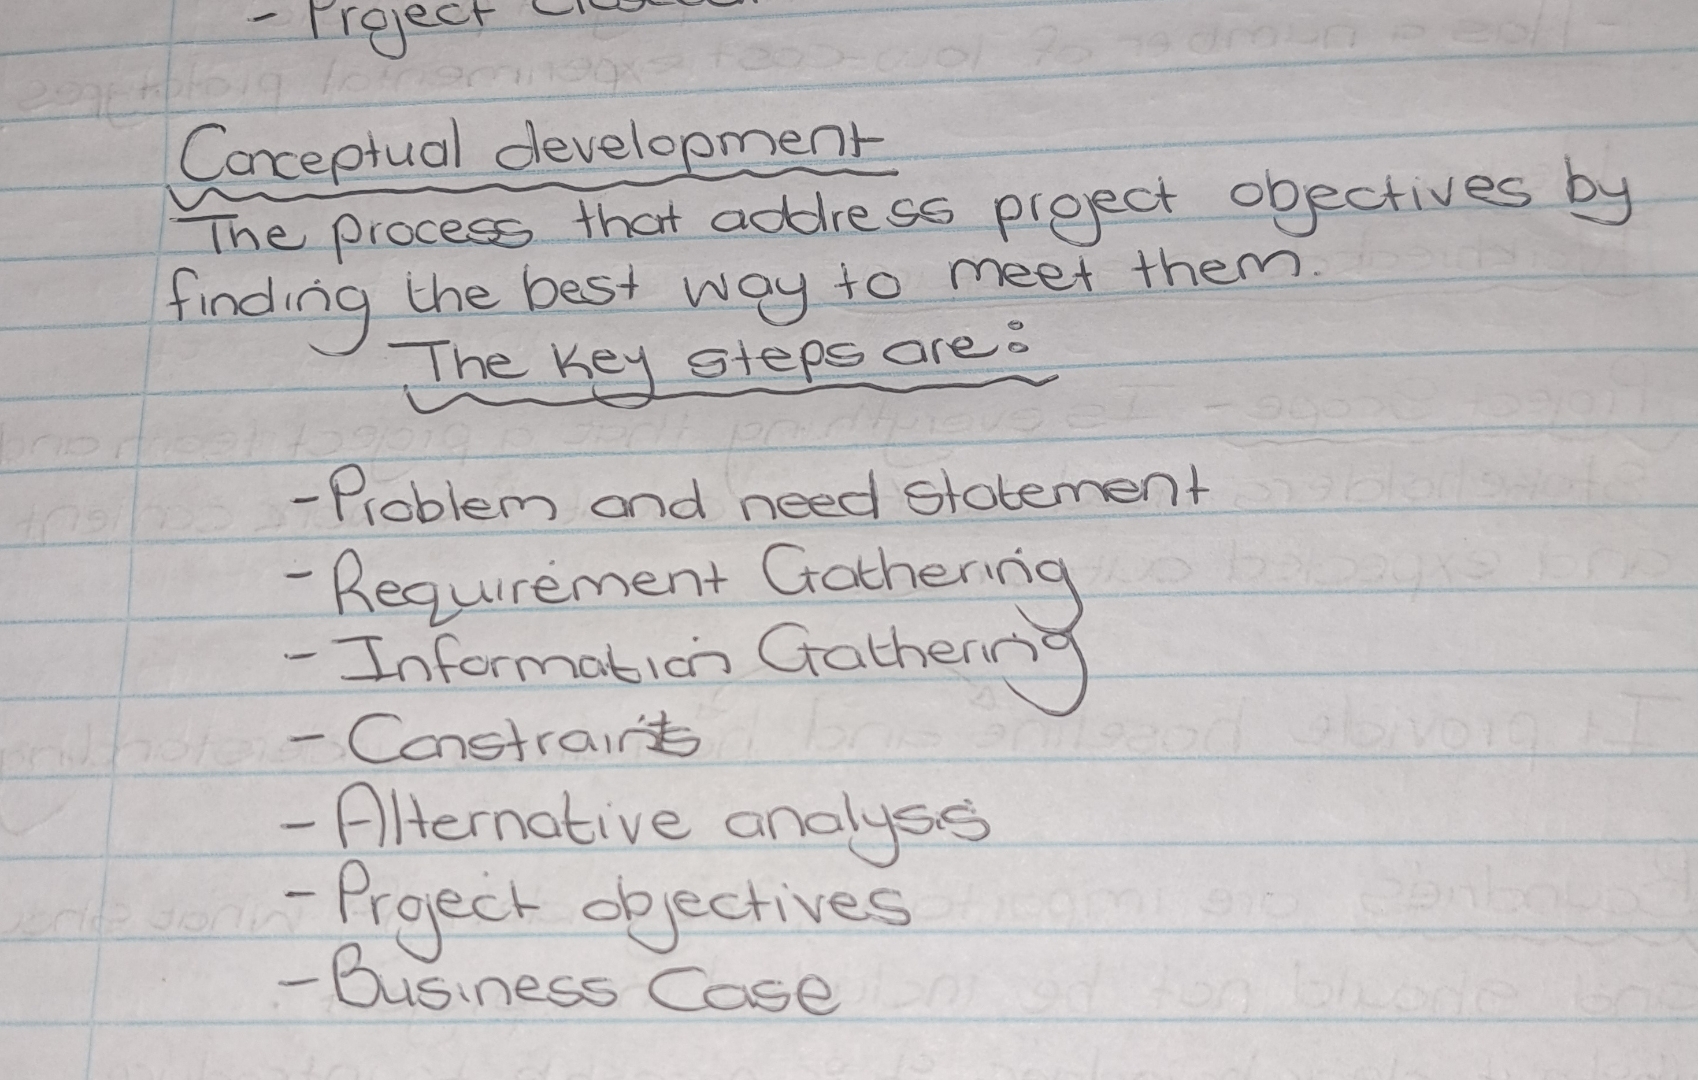 - Project
Conceptual development
The process that address project objectives by
finding the best way to meet them.
The key steps are:
- Problem and need statement
- Requirement Gathering
- Information Gathering
- Constraints
- Alternative analysis
- Project objectives
- Business Case